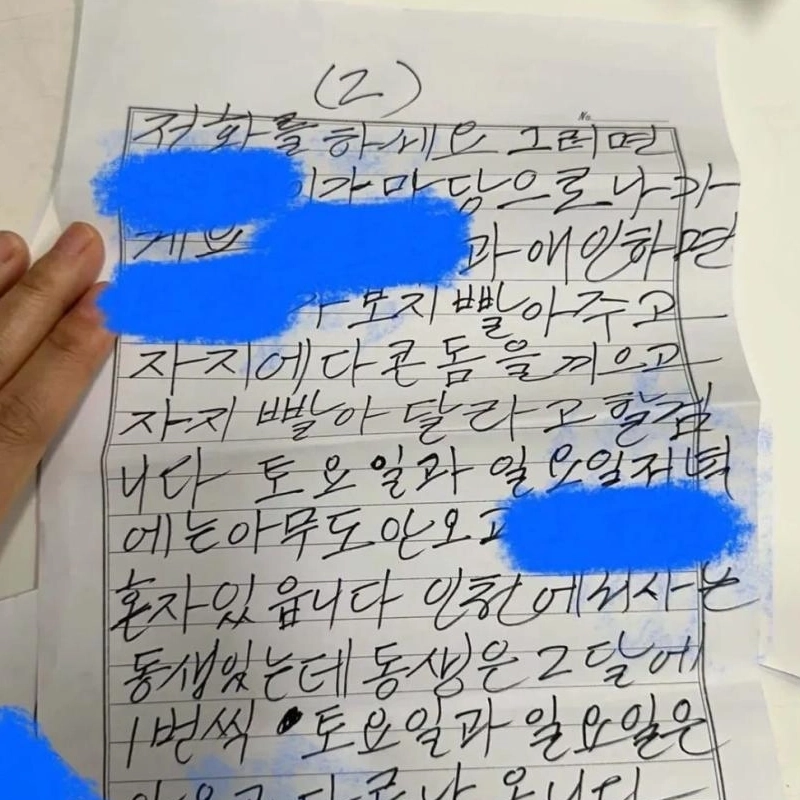 (2)
No.
전화를 하세요 그러면
이가 마당으로 나가
게요 과 애인하면
가 보지 빨아주고
자지에다 콘돔을 끼으고
자지 빨아 달라고 할검
니다 토요일과 일요일저녁
에는아무도안오고
혼자있읍니다 인천에서사는
동생있는데 동생은 2달에
1번씩 토요일과 일요일은